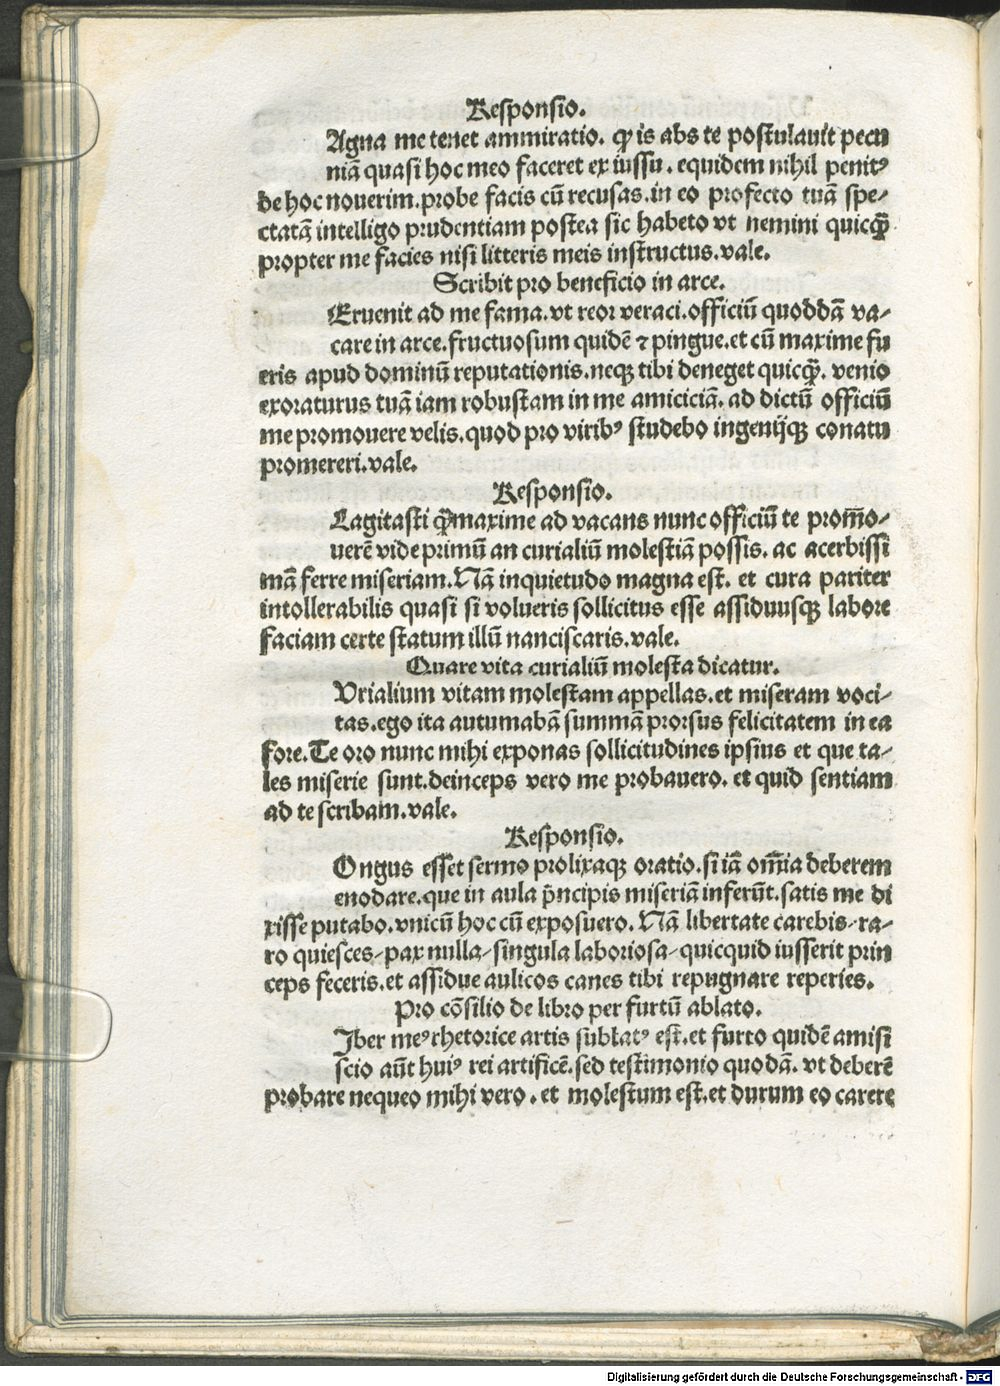 Responsio.
Agna me tenet ammiratio. ꝙ is abs te postulauit pecu
niā quasi hoc meo faceret ex iussu. equidem nihil penitꝰ
de hoc nouerim. probe facis cū recusas. in eo profecto tuā spe-
ctatā intelligo prudentiam postea sic habeto vt nemini quicqꝫ
propter me facies nisi litteris meis instructus. vale.
Scribit pro beneficio in arce.
Eruenit ad me fama. vt reor veraci. officiū quoddā va-
care in arce. fructuosum quidē ⁊ pingue. et cū maxime fu
eris apud dominū reputationis. neqꝫ tibi deneget quicꝙ̄. venio
exoraturus tuā iam robustam in me amiciciā. ad dictū officiū
me promouere velis. quod pro viribꝰ studebo ingenijqꝫ conatu
promereri. vale.
Responsio.
Lagitasti ꝙ̄maxime ad vacans nunc officiū te prom̄o-
uerē vide primū an curialiū molestiā possis. ac acerbissi
mā ferre miseriam. Nā inquietudo magna est. et cura pariter
intollerabilis quasi si volueris sollicitus esse assiduusqꝫ labore
faciam certe statum illū nanciscaris. vale.
Quare vita curialiū molesta dicatur.
Vrialium vitam molestam appellas. et miseram voci-
tas. ego ita autumabā summā prorsus felicitatem in ea
fore. Te oro nunc mihi exponas sollicitudines ipsius et que ta-
les miserie sunt. deinceps vero me probauero. et quid sentiam
ad te scribam. vale.
Responsio.
Ongus esset sermo prolixaqꝫ oratio. si iā om̄ia deberem
enodare. que in aula p̄ncipis miseriā inferūt. satis me di
xisse putabo. vnicū hoc cū exposuero. Nā libertate carebis/ ra-
ro quiesces/ pax nulla/ singula laboriosa/ quicquid iusserit prin
ceps feceris. et assidue aulicos canes tibi repugnare reperies.
Pro cōsilio de libro per furtū ablato.
Iber meꝰ rhetorice artis sublatꝰ est. et furto quidē amisi
scio aūt huiꝰ rei artificē. sed testimonio quodā. vt deberē
probare nequeo mihi vero. et molestum est. et durum eo carere
Digitalisierung gefördert durch die Deutsche Forschungsgemeinschaft - DFG